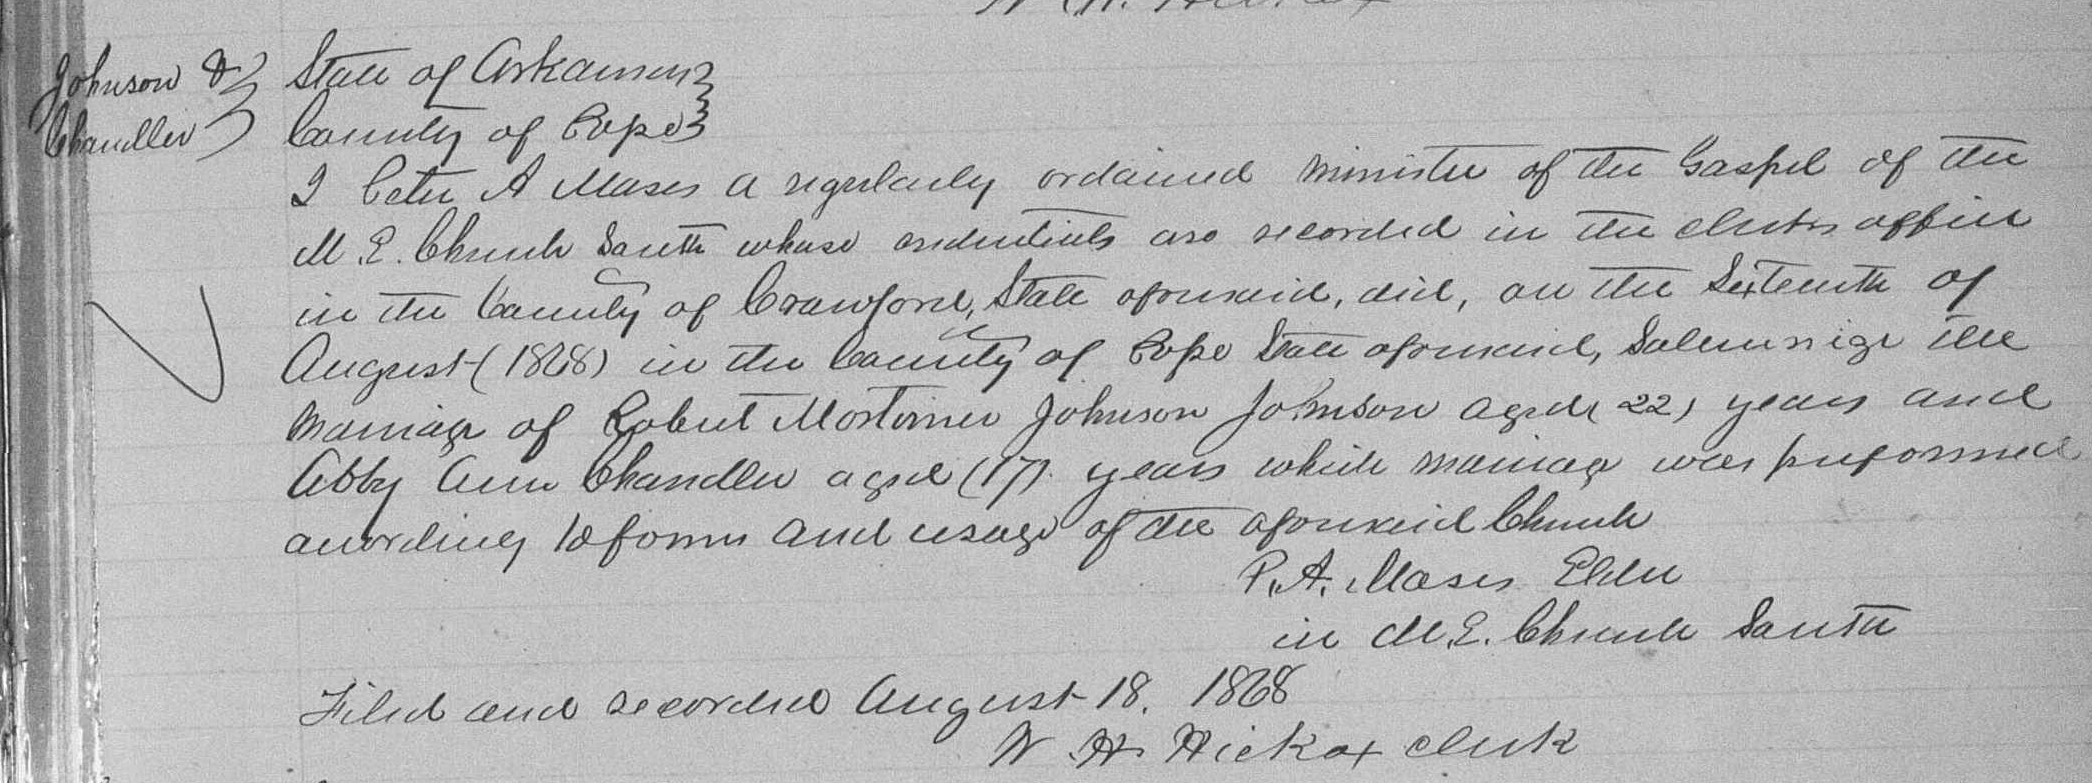 W. H. Hickox
Johnson &
Chandler
State of Arkansas
County of Pope
I Peter A Moses a regularly ordained minister of the Gospel of the
M. E. Church South whose credentials are recorded in the clerks office
in the County of Crawford, State aforesaid, did, on the Sixteenth of
August (1868) in the County of Pope State aforesaid, Solemnize the
marriage of Robert Mortimer Johnson Johnson aged (22) years and
Abby Ann Chandler aged (17) years which marriage was preformed
according to forms and usage of the aforesaid Church
P. A. Moses Elder
in M. E. Church South
Filed and recorded August 18. 1868
W. H. Hickox clerk